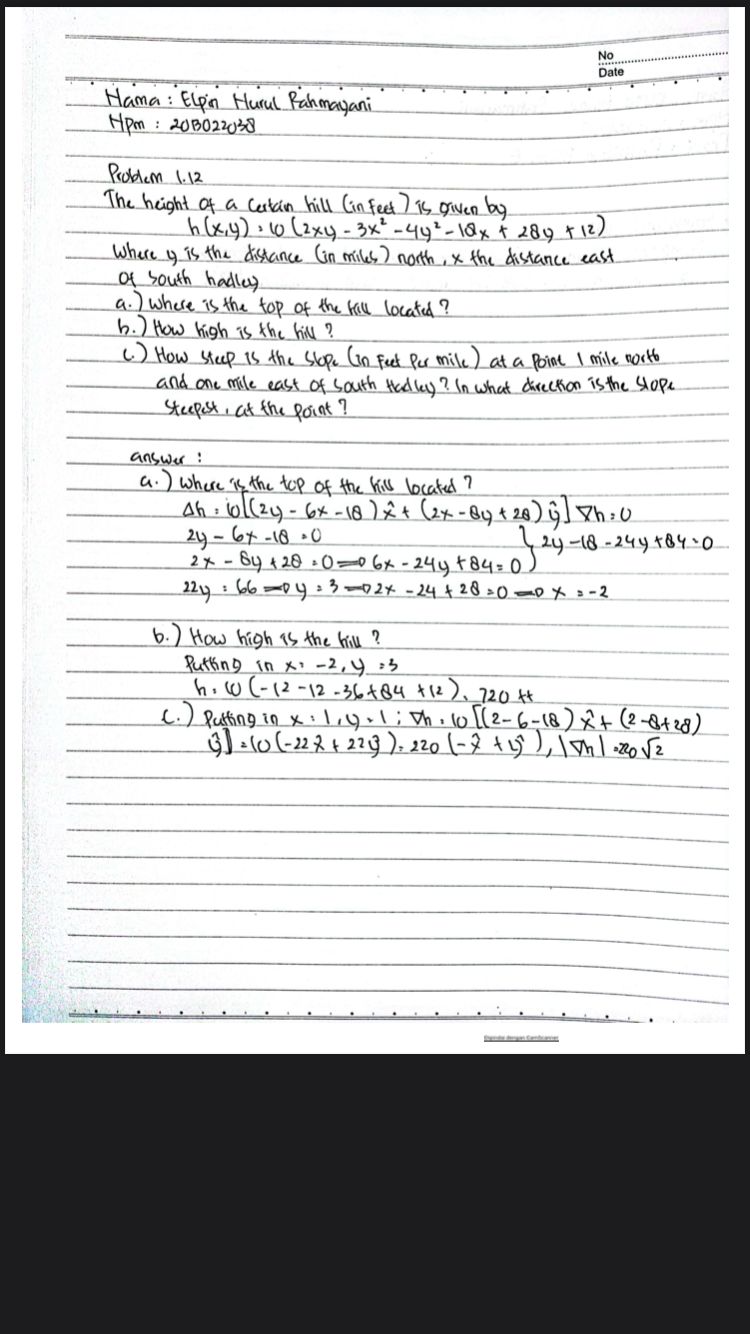 No
Date
Nama : Elpin Nurul Rahmayani
Npm : 20B022038
Problem 1.12
The height of a certain hill (in feet) is given by
h(x,y) = 10 (2xy - 3x² - 4y² - 18x + 28y + 12)
Where y is the distance (in miles) north, x the distance east
of South hadley
a.) Where is the top of the hill located ?
b.) How high is the hill ?
c.) How steep is the slope (in feet per mile) at a point 1 mile north
and one mile east of south Hadley ? In what direction is the slope
steepest, at the point ?
answer :
a.) Where is the top of the hill located ?
Δh = 10[(2y - 6x - 18) x̂ + (2x - 8y + 28) ŷ] ∇h = 0
2y - 6x - 18 = 0
2x - 8y + 28 = 0 ⇒ 6x - 24y + 84 = 0 } 2y - 18 - 24y + 84 = 0
22y = 66 ⇒ y = 3 ⇒ 2x - 24 + 28 = 0 ⇒ x = -2
b.) How high is the hill ?
Putting in x = -2, y = 3
h = 10 (-12 - 12 - 36 + 84 + 12) = 720 ft
c.) Putting in x = 1, y = 1 ; ∇h = 10 [(2 - 6 - 18) x̂ + (2 - 8 + 28)
ŷ] = 10 (-22 x̂ + 22 ŷ) = 220 (-x̂ + ŷ), |∇h| = 220 √2
Dipindai dengan CamScanner